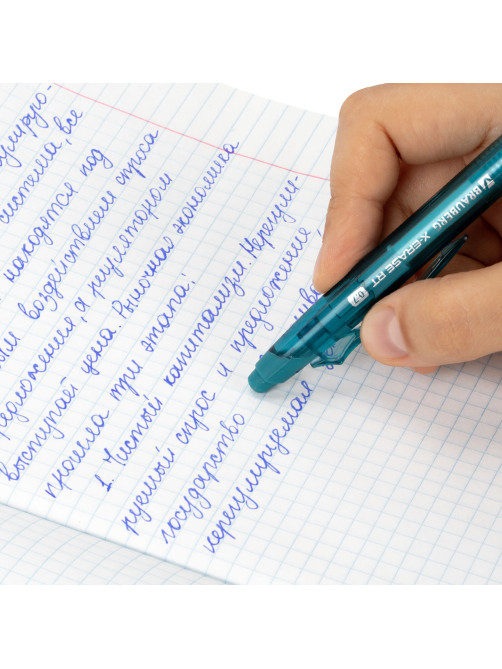 находятся под
воздействием спроса
а регулятором
выступает цена. Рыночная экономика
прошла три этапа:
1. Чистый капитализм. Нерегули-
руемый спрос и предложение
государство
нерегулируемая
BRAUBERG X-ERASE RT 0.7